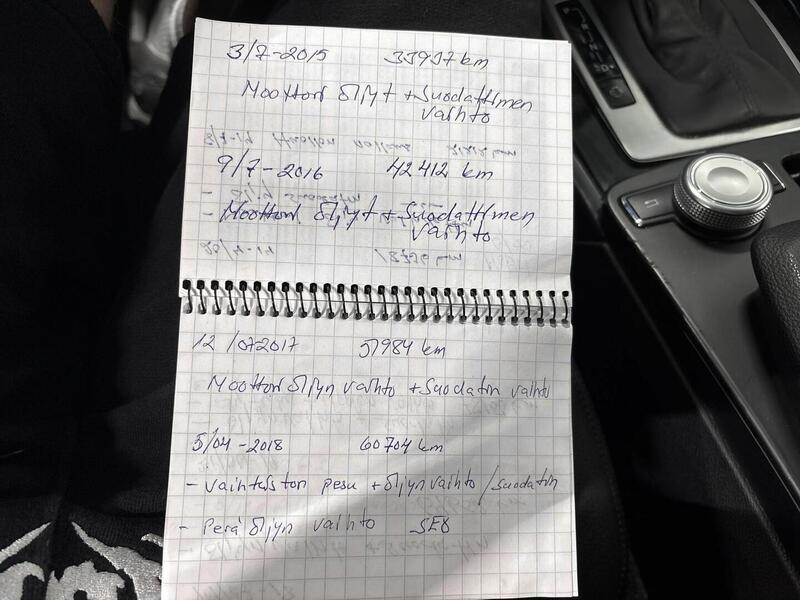 3/7-2015 33907 km
Moottori öljyt + Suodattimen
vaihto
9/7-2016 42412 km
- Moottori öljyt + Suodattimen
vaihto
12/072017 51984 km
Moottori öljyn vaihto + Suodatin vaihto
5/04-2018 60704 km
- Vaihteiston pesu + öljyn vaihto/suodatin
- Perä öljyn vaihto